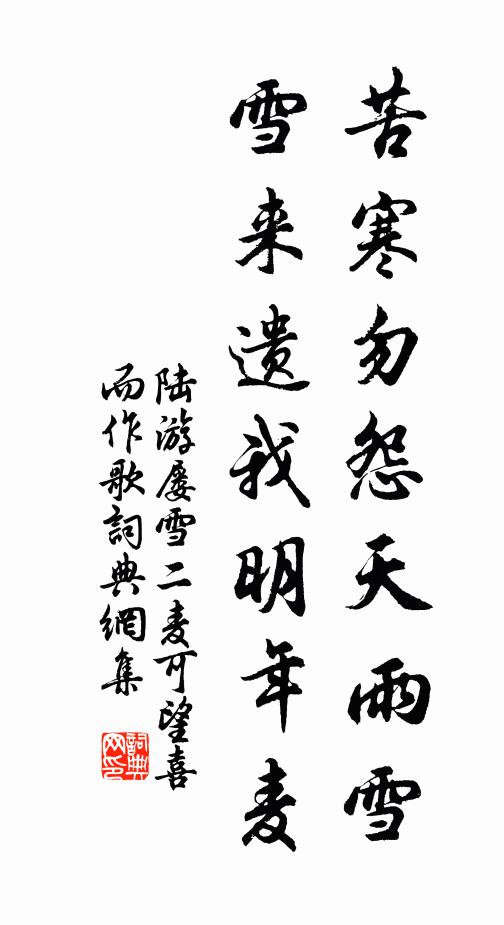 苦寒勿怨天雨雪
雪来遗我明年麦
陆游屡雪二麦可望喜
而作歌詞典網集
詞典
网印